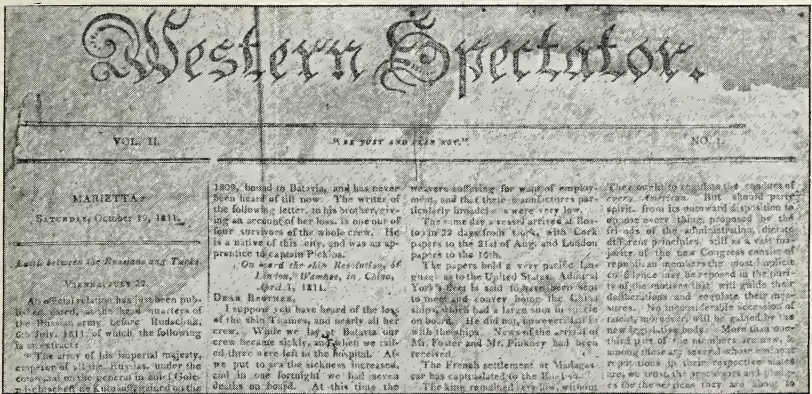 Western Spectator.
VOL. II. "BE JUST AND FEAR NOT." NO. 1.
MARIETTA:
SATURDAY, October 19, 1811.
Battle between the Russians and Turks.
VIENNA, JULY 27.
An official relation has just been pub-
lished, dated, at the head quarters of
the Russian army before Rudschuk,
6th July, 1811, of which the following
is an extract:
The army of his imperial majesty,
emperor of all the Russias, under the
command of the general in chief Gole-
1809, bound to Batavia, and has never
been heard of till now. The writer of
the following letter, to his brother, giv-
ing an account of her loss, is one out of
four survivors of the whole crew. He
is a native of this city, and was an ap-
prentice to captain Pickins.
On board the ship Resolution, of
London, Wampoa, in China,
April 1, 1811.
DEAR BROTHER,
I suppose you have heard of the loss
of the ship Tigames, and nearly all her
crew. While we lay at Batavia our
crew became sickly, and when we sail-
ed three were left to the hospital. As
we put to sea the sickness increased,
and in one fortnight we had seven
deaths on board. At this time the
weavers suffering for want of employ-
ment, and that their manufactures par-
ticularly broadcloths were very low.
The same day a vessel arrived at Bos-
ton in 22 days from Cork, with Cork
papers to the 21st of Aug. and London
papers to the 16th.
The papers hold a very pacific lan-
guage as to the United States. Admiral
York's fleet is said to have been sent
to meet and convoy home the China
ships, which had a large sum in specie
on board. He did not, however, fall in
with the ships. News of the arrival of
Mr. Foster and Mr. Pinkney had been
received.
The French settlement at Madagas-
car has capitulated to the English.
The king remained very low, without
They ought to regulate the conduct of
every American. But should party
spirit, from its untoward disposition to
oppose every thing, proposed by the
friends of the administration, dictate
different principles, still as a vast ma-
jority of the new Congress consist of
republican members the most implicit
confidence may be reposed in the puri-
ty of the motives that will guide their
deliberations and regulate their mea-
sures. No inconsiderable accession of
talents, moreover, will be gained by the
new legislative body. More than one-
third part of the members are new,
among these are several whose
reputations in their respective states
are, we trust the
es for the services they are about to